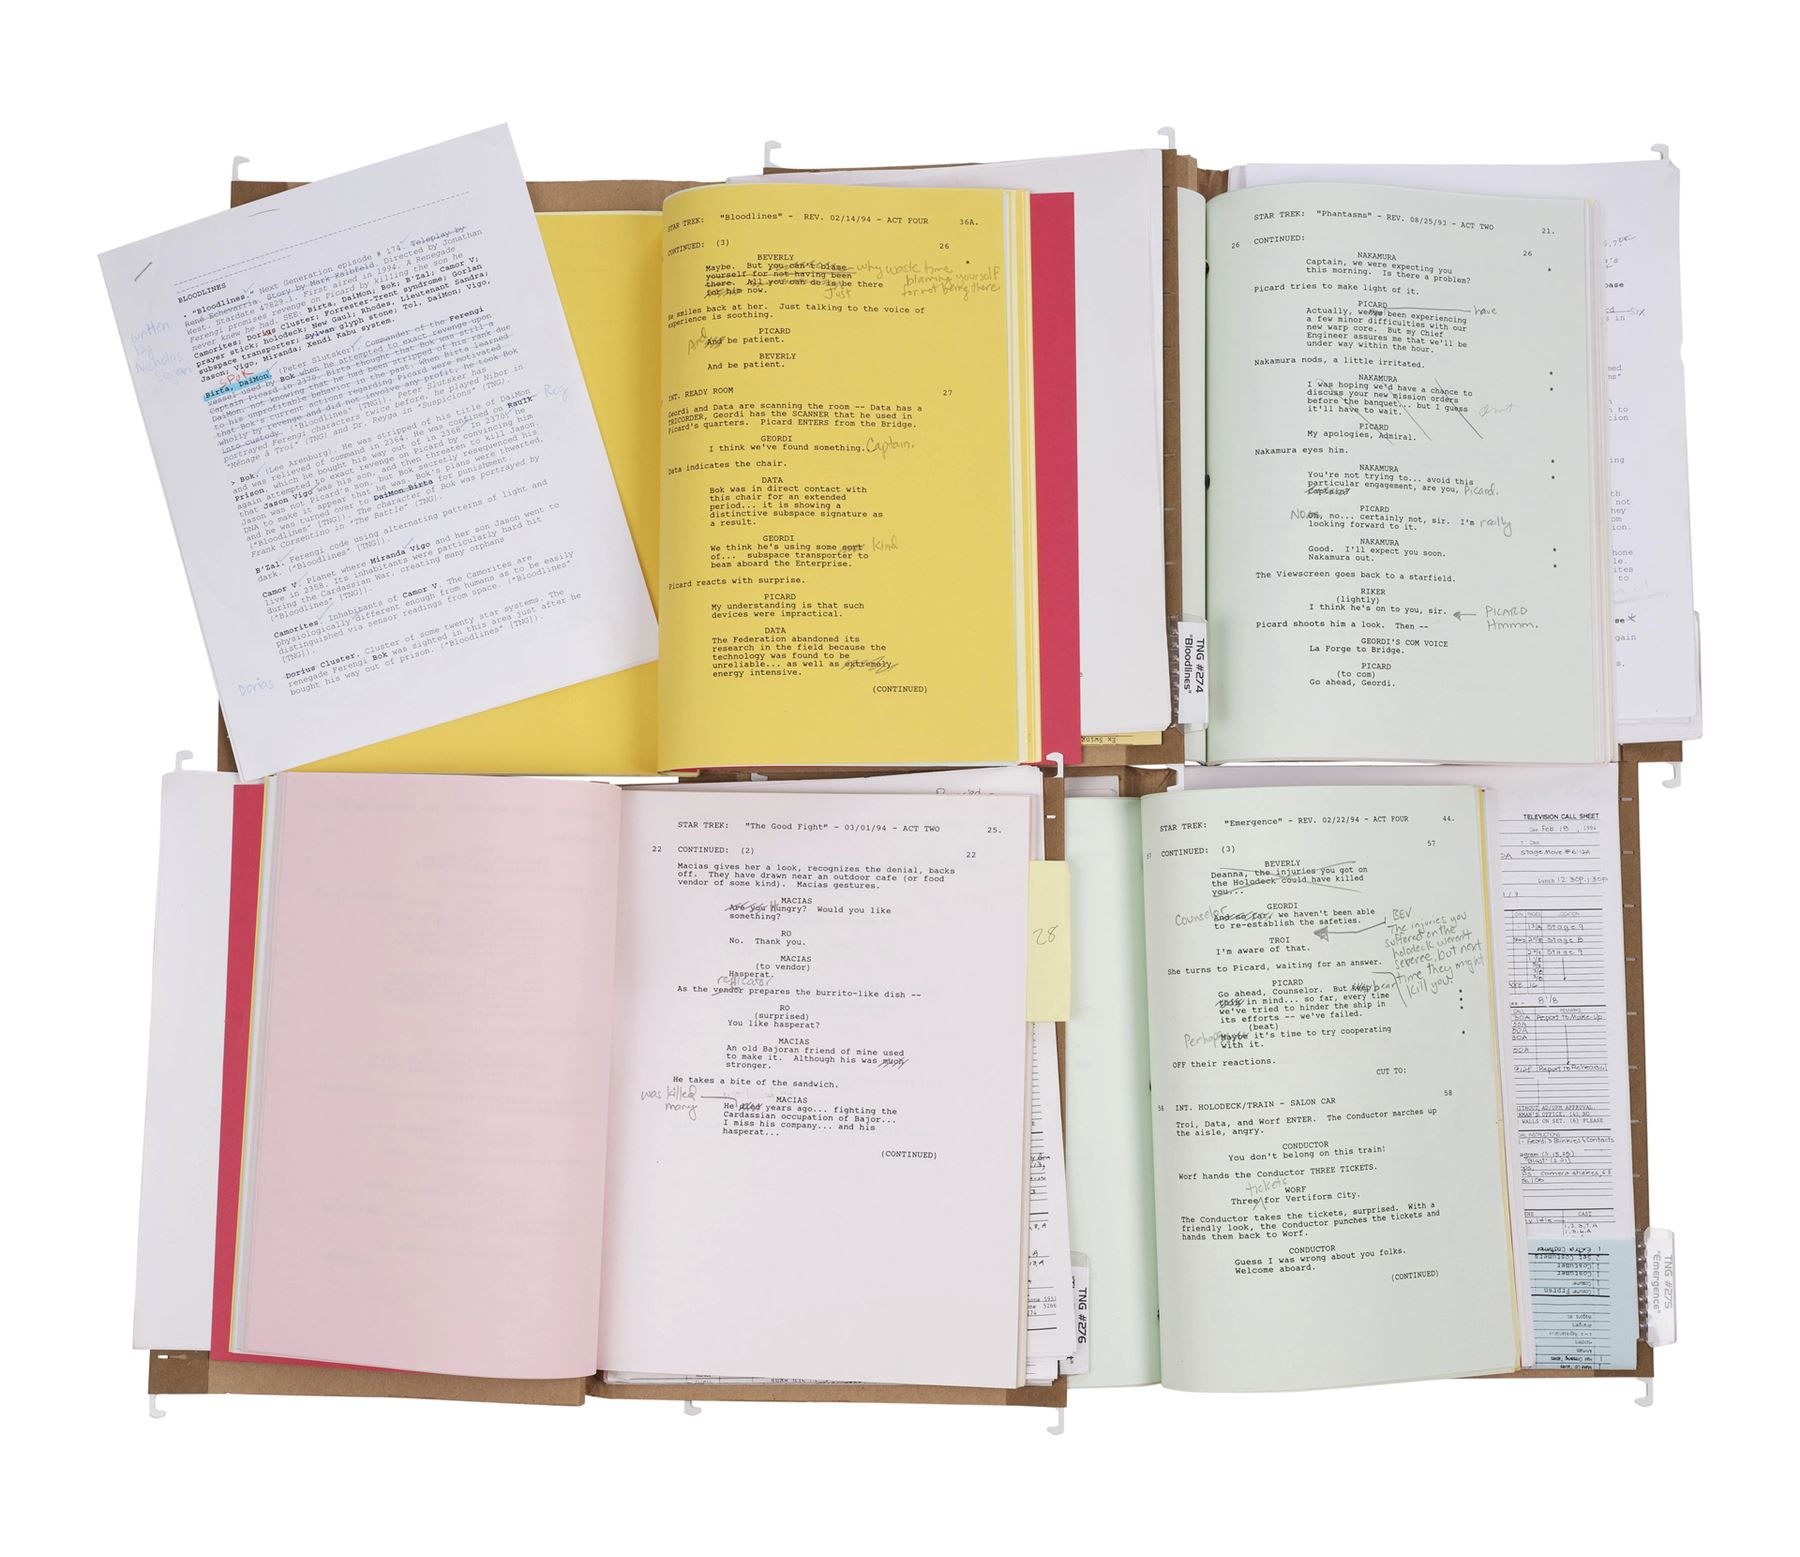 BLOODLINES
• "Bloodlines." Next Generation episode # 174. Teleplay by
René Echevarria. Story by Mark Kalbfeld. Directed by Jonathan
West. Stardate 47829.1. First aired in 1994. A Renegade
Ferengi promises revenge on Picard by killing the son he
never knew he had. SEE: Birta, DaiMon; Bok; B'Zal; Camor V;
Camorites; Dorias Cluster; Forrester-Trent syndrome; Gorlan
prayer stick; holodeck; New Gaul; Rhodes, Lieutenant Sandra;
subspace transporter; Sylvan glyph stone; Tol, DaiMon; Vigo,
Jason; Vigo, Miranda; Xendi Kabu system.
written
by
Nicholas
Sagan
Birta, DaiMon. (Peter Slutsker). Commander of the Ferengi
vessel used by Bok when he attempted to exact revenge upon
Captain Picard in 2370. Birta thought that Bok was still a
DaiMon, not knowing that he had been stripped of his rank due
to his unprofitable behavior in the past. When Birta learned
that Bok's current actions regarding Picard were motivated
wholly by revenge and did not involve any profit, he took Bok
into custody. ("Bloodlines" [TNG]). Peter Slutsker has
portrayed Ferengi characters twice before, he played Nibor in
"Ménage à Troi" (TNG) and Dr. Reyga in "Suspicions" (TNG).
> Bok. (Lee Arenburg). He was stripped of his title of DaiMon
and was relieved of command in 2364. He was confined on Raulk
Rog
Prison, which he bought his way out of in 2368. In 2370, he
again attempted to exact revenge on Picard by convincing him
that Jason Vigo was his son, and then threatened to kill Jason.
Jason was not Picard's son, but Bok secretly resequenced his
DNA to make it appear that he was. Bok's plans were thwarted,
and he was turned over to DaiMon Birta for punishment.
("Bloodlines" [TNG]). The character of Bok was portrayed by
Frank Corsentino in "The Battle" (TNG).
B'Zal. Ferengi code using alternating patterns of light and
dark. ("Bloodlines" [TNG]).
Camor V. Planet where Miranda Vigo and her son Jason went to
live in 2358. Its inhabitants were particularly hard hit
during the Cardassian War, creating many orphans
("Bloodlines" [TNG]).
Camorites. Inhabitants of Camor V. The Camorites are
physiologically different enough from humans as to be easily
distinguished via sensor readings from space. ("Bloodlines"
[TNG]).
Dorius Cluster. Cluster of some twenty star systems. The
Dorias
renegade Ferengi Bok was sighted in this area just after he
bought his way out of prison. ("Bloodlines" [TNG]).
STAR TREK: "Bloodlines" - REV. 02/14/94 - ACT FOUR 36A.
CONTINUED: (3) 26
BEVERLY *
Maybe. But you can't blame
yourself for not having been
there. All you can do is be there
for him now.
why waste time
blaming yourself
for not being there
Just
He smiles back at her. Just talking to the voice of
experience is soothing.
PICARD
And be patient.
And
BEVERLY
And be patient.
INT. READY ROOM 27
Geordi and Data are scanning the room -- Data has a
TRICORDER, Geordi has the SCANNER that he used in
Picard's quarters. Picard ENTERS from the Bridge.
GEORDI
I think we've found something. Captain.
Data indicates the chair.
DATA
Bok was in direct contact with
this chair for an extended
period... it is showing a
distinctive subspace signature as
a result.
GEORDI
We think he's using some sort kind
of... subspace transporter to
beam aboard the Enterprise.
Picard reacts with surprise.
PICARD
My understanding is that such
devices were impractical.
DATA
The Federation abandoned its
research in the field because the
technology was found to be
unreliable... as well as extremely
energy intensive.
(CONTINUED)
TNG #274
"Bloodlines"
STAR TREK: "Phantasms" - REV. 08/25/93 - ACT TWO 21.
26 CONTINUED: 26
NAKAMURA
Captain, we were expecting you *
this morning. Is there a problem?
Picard tries to make light of it.
PICARD
Actually, we've been experiencing *
have
a few minor difficulties with our
new warp core. But my Chief
Engineer assures me that we'll be
under way within the hour.
Nakamura nods, a little irritated. *
NAKAMURA *
I was hoping we'd have a chance to
discuss your new mission orders
before the banquet... but I guess
it'll have to wait.
omit
PICARD
My apologies, Admiral.
Nakamura eyes him.
NAKAMURA *
You're not trying to... avoid this
particular engagement, are you, Picard. *
Captain?
PICARD
No, no... certainly not, sir. I'm really
looking forward to it.
NAKAMURA
Good. I'll expect you soon. *
Nakamura out. *
The Viewscreen goes back to a starfield.
RIKER
(lightly)
I think he's on to you, sir.
PICARD
Hmmm.
Picard shoots him a look. Then --
GEORDI'S COM VOICE
La Forge to Bridge.
PICARD
(to com)
Go ahead, Geordi.
STAR TREK: "The Good Fight" - 03/01/94 - ACT TWO 25.
22 CONTINUED: (2) 22
Macias gives her a look, recognizes the denial, backs
off. They have drawn near an outdoor cafe (or food
vendor of some kind). Macias gestures.
MACIAS
Are you Hungry? Would you like
something?
RO
No. Thank you.
MACIAS
(to vendor)
Hasperat.
replicator
As the vendor prepares the burrito-like dish --
RO
(surprised)
You like hasperat?
MACIAS
An old Bajoran friend of mine used
to make it. Although his was much
stronger.
He takes a bite of the sandwich.
was killed
many
MACIAS
He died years ago... fighting the
Cardassian occupation of Bajor...
I miss his company... and his
hasperat...
(CONTINUED)
28
TNG #276
STAR TREK: "Emergence" - REV. 02/22/94 - ACT FOUR 44.
57 CONTINUED: (3) 57
BEVERLY
Deanna, the injuries you got on
the Holodeck could have killed
you...
GEORDI
Counselor
And so far, we haven't been able
to re-establish the safeties.
BEV
The injuries you
suffered on the
holodeck weren't
severe, but next
time they might
kill you.
TROI
I'm aware of that.
She turns to Picard, waiting for an answer.
PICARD
Go ahead, Counselor. But keep bear
this in mind... so far, every time
we've tried to hinder the ship in
its efforts -- we've failed.
(beat)
Perhaps
Maybe it's time to try cooperating *
with it.
OFF their reactions.
CUT TO:
58 INT. HOLODECK/TRAIN - SALON CAR 58
Troi, Data, and Worf ENTER. The Conductor marches up
the aisle, angry.
CONDUCTOR
You don't belong on this train!
Worf hands the Conductor THREE TICKETS.
tickets
WORF
Three for Vertiform City.
The Conductor takes the tickets, surprised. With a
friendly look, the Conductor punches the tickets and
hands them back to Worf.
CONDUCTOR
Guess I was wrong about you folks.
Welcome aboard.
(CONTINUED)
TELEVISION CALL SHEET
Feb. 18, 1994
Stage Move #6:12A
Lunch 12:30P-1:30P
LOCATION
Stage 9
Stage 8
Stage 9
8 1/8
Report to Make-up
Report to Rehearsal
CAST
TNG #275
"Emergence"